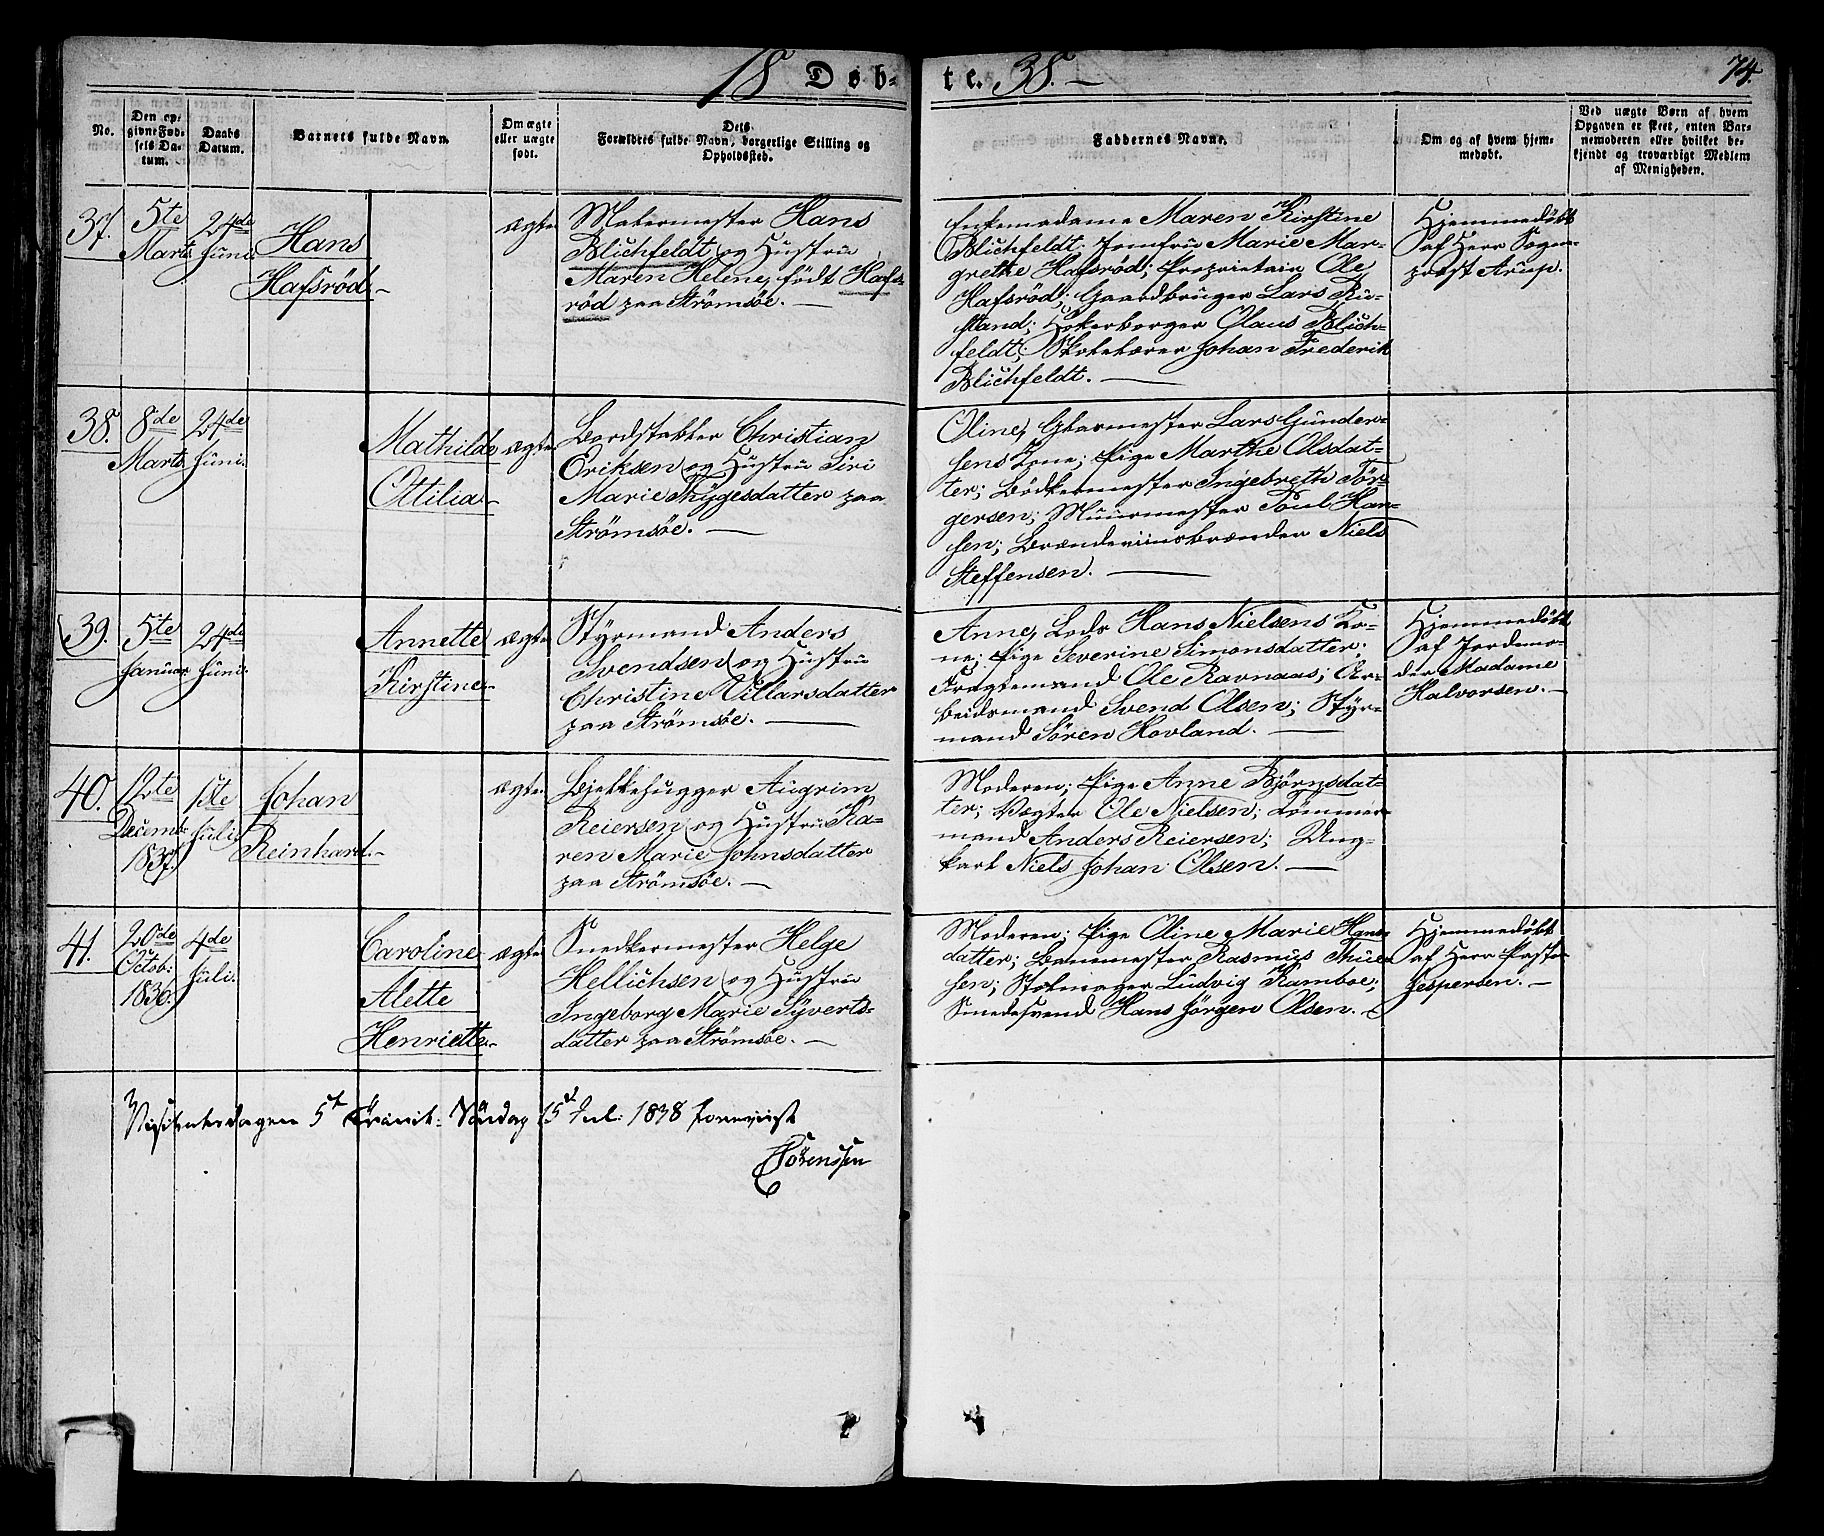 18 Døb-
te. 38.
74.
No.
Den op-
givne Fød-
sels Da-
tum.
Daabs
Datum.
Barnets fulde Navn.
Om ægte
eller uægte
født.
Dets
Forældres fulde Navn, borgerlige Stilling og
Opholdssted.
Faddernes Navne.
Om og af hvem hjem-
medøbt.
Ved uægte Børn af hvem
Opgaven er skeet, enten Bar-
nemoderen eller hvilket be-
kjendt og troværdigt Medlem
af Menigheden.
37.
5te
Marts
24de
Juni
Hans
Hafsröd.
ægte
Malermester Hans
Blichfeldt og Hustru
Maren Helene, födt Hafs-
röd paa Strömsöe.
Enkemadame Maren Kirstine
Blichfeldt; Jomfru Marie Mar-
grethe Hafsröd; Proprietair Ole
Hafsröd; Gaardbruger Lars Ru-
stand; Hökerborger Olaus Blich-
feldt; Skolelærer Johan Frederik
Blichfeldt.
Hjemmedöbt
af Herr Sogne-
præst Arup.
38.
8de
Marts
24de
Juni.
Mathilde
Ottilia.
ægte
Bordstabler Christian
Eriksen og Hustru Siri
Marie Thygesdatter paa
Strömsöe.
Oline, Glarmester Lars Gunder-
sens Kone; Pige Marthe Olsdat-
ter; Bödkermester Ingebreth Tör-
gersen; Muurmester Poul Han-
sen; Brændeviinsbrænder Niels
Steffensen.
39.
5te
Januar
24de
Juni.
Annette
Kirstine.
ægte
Styrmand Anders
Svendsen og Hustru
Christine Villarsdatter
paa Strömsöe.
Anne, Lods Hans Nielsens Ko-
ne; Pige Severine Simonsdatter;
Fragtemand Ole Ravnaas; Ar-
beidsmand Svend Olsen; Styr-
mand Sören Hovland.
Hjemmedöbt
af Jordemo-
der Madame
Halvorsen.
40.
12te
Decemb:
1837.
1ste
Juli.
Johan
Reinhard.
ægte
Bjelkehugger Augrim
Reiersen og Hustru Ka-
ren Marie Johnsdatter
paa Strömsöe.
Moderen; Pige Anne Björnsdat-
ter; Vægter Ole Nielsen; Tömmer-
mand Anders Reiersen; Ung-
karl Niels Johan Olsen.
41.
20de
Octob:
1836.
4de
Juli.
Caroline
Alette
Henriette.
ægte
Snedkermester Helge
Hellichsen og Hustru
Ingeborg Marie Syverts-
datter paa Strömsöe.
Moderen; Pige Oline Marie Hans-
datter; Rasmus Thue-
sen; Stolmager Ludvig Ramboe;
Smedesvend Hans Jörgen Olsen.
Hjemmedöbt
af Herr Pastor
Jespersen.
Visitatsdagen 5t Trinit: Söndag 15d Jul: 1838 foreviist
Sörenssen